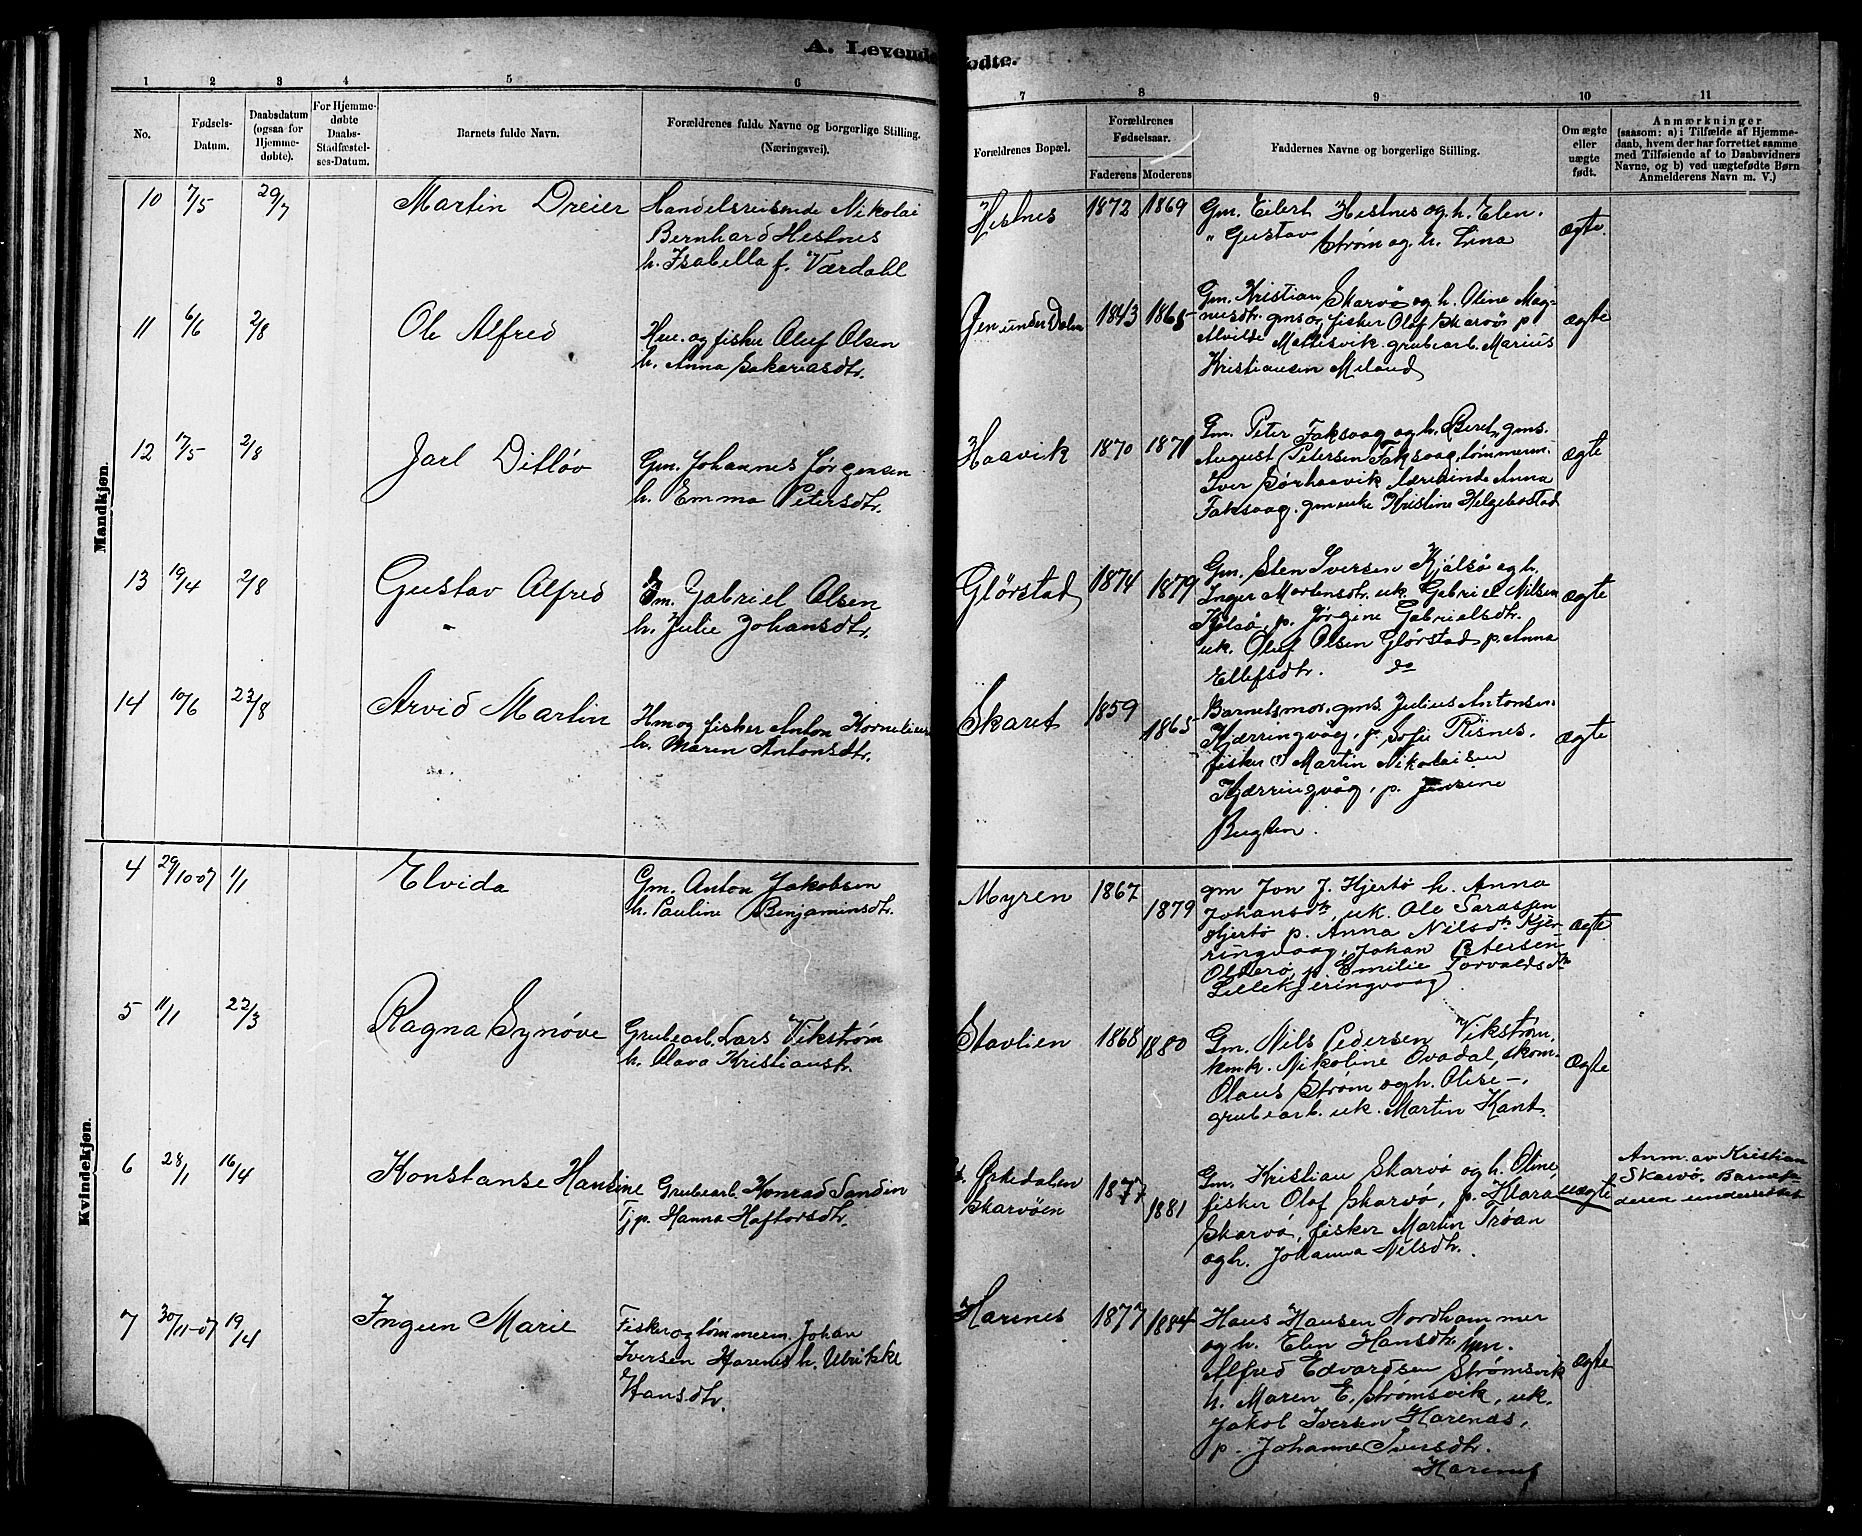 A. Levende
fødte.
1 2 3 4 5 6 7 8 9 10 11
No.
Fødsels-
Datum.
Daabsdatum
(ogsaa for
Hjemme-
døbte).
For Hjemme-
døbte
Daabs-
Stadfæstel-
ses-Datum.
Barnets fulde Navn.
Forældrenes fulde Navne og borgerlige Stilling.
(Næringsvei).
Forældrenes Bopæl.
Forældrenes
Fødselsaar.
Faderens Moderens
Faddernes Navne og borgerlige Stilling.
Om ægte
eller
uægte
født.
Anmærkninger
(saasom: a) i Tilfælde af Hjemme-
daab, hvem der har forrettet samme
med Tilføiende af to Daabsvidners
Navne, og b) ved uægtefødte Børn
Anmelderens Navn m. V.)
Mandkjøn.
10 7/5 29/7 Martin Dreier
Handelsreisende Nikolai
Bernhard Hestnes
h. Isabella f. Værdahl
Hestnes 1872 1869
Gm. Eilert Hestnes og h. Elen.
" Gustav Strøm og h. Lina
ægte.
11 6/6 2/8 Ole Alfred
Hm. og fisker Oluf Olsen
h. Anna Sakariasdtr.
Øen under Dolm 1843 1865
Gm. Kristian Skarvø og h. Oline Mag-
nusdtr. gms og fisker Olaf Skarvø p.
Alvilde Mattisvik. grubearb. Marius
Kristiansen Meland
ægte
12 17/5 2/8 Jarl Ditløv
Gm. Johannes Jørgensen
h. Emma Petersdtr.
Haavik 1870 1871
Gm. Peter Faksvaag og h. Beret, gms.
August Petersen Faksvaag, tømmerm.
Iver Sørhaavik Lærerinde Anna
Faksvaag. gmenke Kristine Helgebostad
ægte
13 19/4 2/8 Gustav Alfred
Gm. Gabriel Olsen
h. Julie Johansdtr.
Glørstad 1874 1879
Gm. Sten Iversen Kjølsø og h.
Inger Mortensdtr. uk. Gabriel Nilsen
Kjølsø, p. Jørgine Gabrielsdtr.
uk. Oluf Olsen Glørstad p. Anna
Ellefsdtr. do
ægte
14 10/6 23/8 Arvid Martin
Hm og fisker Anton Kornelius
h. Maren Antonsdtr.
Skaret 1859 1865
Barnets mor. gms. Julius Antonsen
Kjærringvåg, p. Sofie Risnes.
fisker (?) Martin Nikolaisen
Kjærringvåg, p. Jensine
Bugten.
ægte
Kvindekjøn.
4 29/10-07 1/1 Elvida
Gm. Anton Jakobsen
h. Pauline Benjaminsdtr.
Myren 1867 1879
gm Jon J. Hjertø h. Anna
Johansdtr, uk. Ole Sarassen
Hjertø p. Anna Nilsdtr Kjer-
ringvaag, Johan Petersen
Olderø, p. Emilie Torvaldsdtr
Lillekjerringvaag
ægte
5 11/1 22/3 Ragna Synøve
Grubearb. Lars Vikstrøm
h. Olava Kristianstr.
Stavlien 1868 1880
Gm. Nils Pedersen Vikstrøm,
kmk. Nikoline Ovadal, skom.
Olaus Strøm og h. Olise –.
grubearb. uk. Martin Kant.
ægte
6 28/1 16/4 Konstanse Hansine
Grubearb. Konrad Sandin
Tjp. Hanna Haftorsdtr.
Ørkedalen
Skarvøen
1877 1881
Gm. Kristian Skarvø og h. Oline,
fisker Olaf Skarvø, p. Klara
Skarvø, fisker Martin Trøan
og h. Johanna Nilsdtr.
uægte
Anm. av Kristian
Skarvø. Barnefa-
deren underrettet
7 30/11-07 19/4 Ingun Marie
Fisker og tømmerm. Johan
Iversen Harenes h. Ulrikke
Hansdtr.
Harenes 1877 1884
Hans Hansen Nordhammer
og h. Elen Hansdtr. gm.
Alfred Edvardsen Strømsvik
h. Maren E. Strømsvik, uk.
Jakob Iversen Harenæs,
p. Johanne Iversdtr.
Harenes
ægte